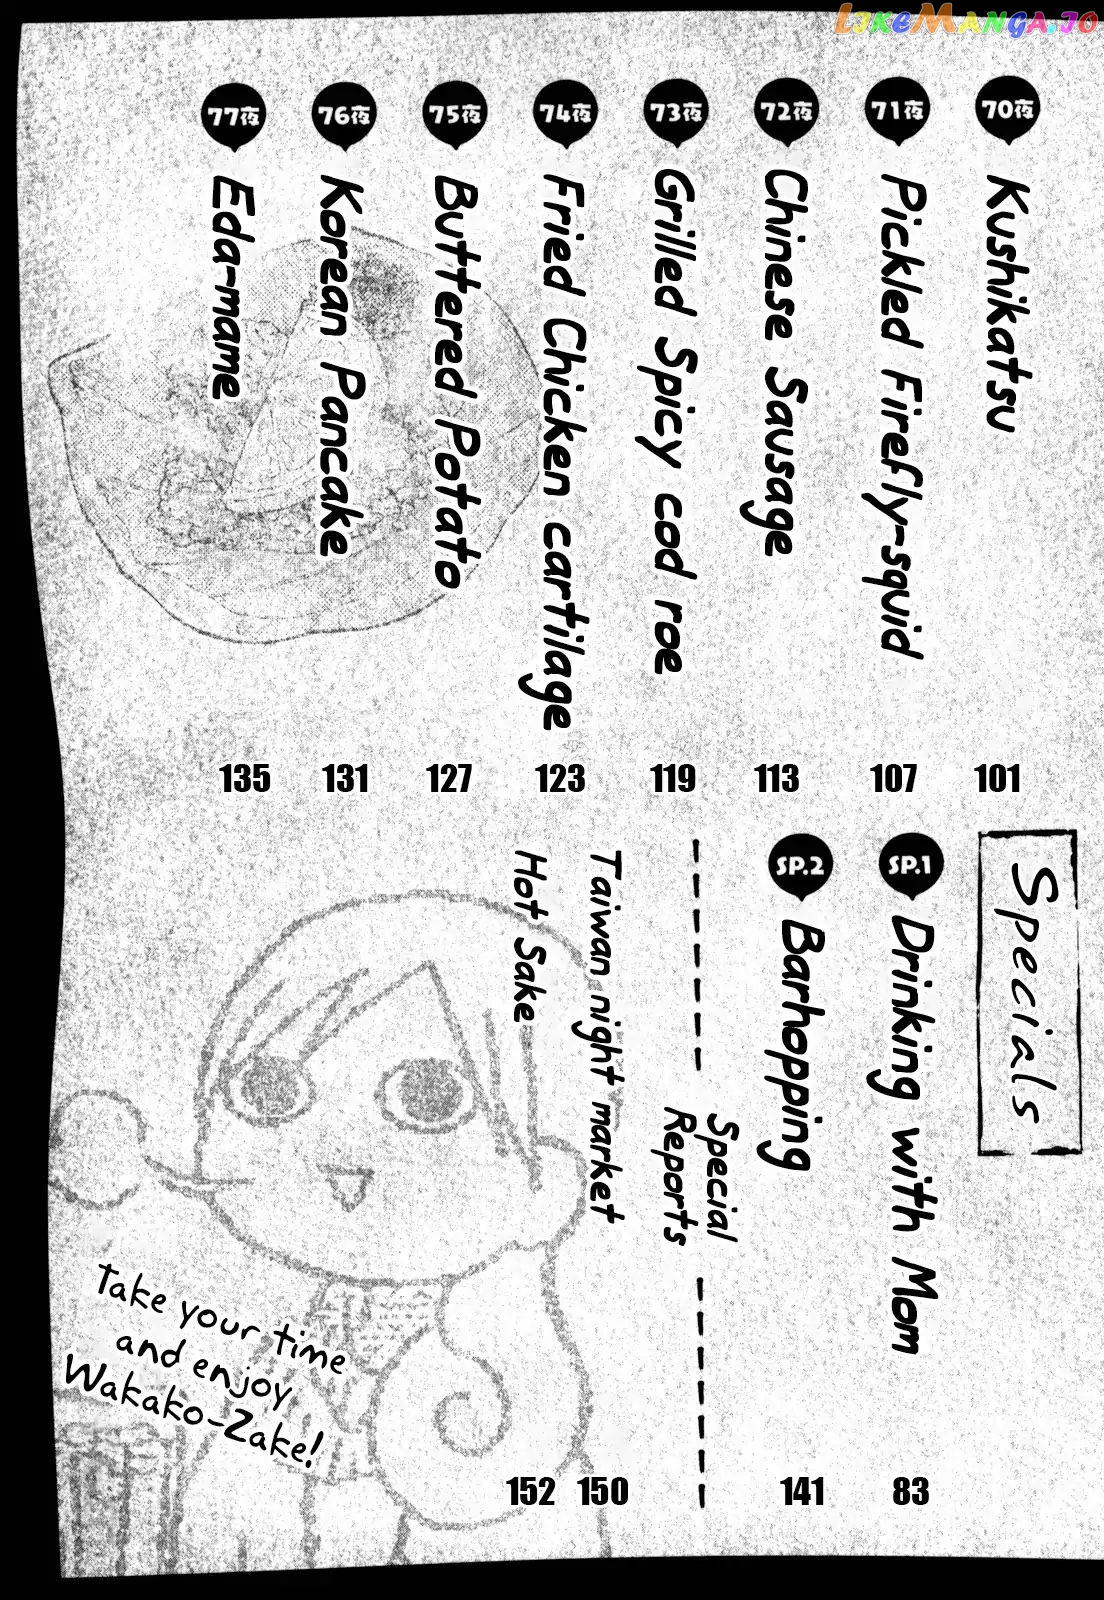 LIKEMANGA.IO
70夜 Kushikatsu 101
71夜 Pickled Firefly-squid 107
72夜 Chinese Sausage 113
73夜 Grilled Spicy cod roe 119
74夜 Fried Chicken cartilage 123
75夜 Buttered Potato 127
76夜 Korean Pancake 131
77夜 Eda-mame 135
Specials
SP.1 Drinking with Mom 83
SP.2 Barhopping 141
Special
Reports
Taiwan night market 150
Hot Sake 152
Take your time
and enjoy
Wakako-Zake!